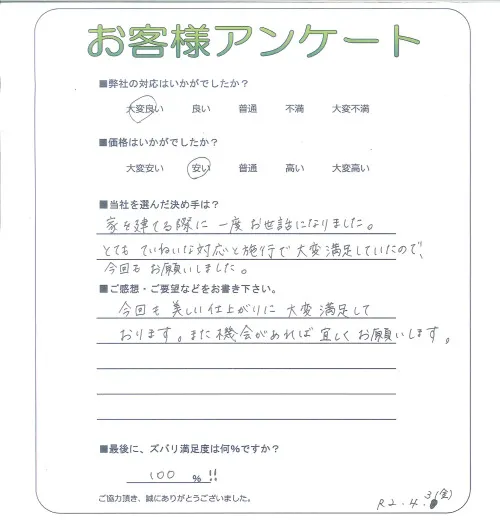 お客様アンケート
■弊社の対応はいかがでしたか？
大変良い 良い 普通 不満 大変不満
■価格はいかがでしたか？
大変安い 安い 普通 高い 大変高い
■当社を選んだ決め手は？
家を建てる際に 一度 お世話になりました。
とても ていねいな対応と施行で 大変満足していたので、
今回も お願いしました。
■ご感想・ご要望などをお書き下さい。
今回も 美しい仕上がりに 大変満足して
おります。また機会があれば 宜しく お願いします。
■最後に、ズバリ満足度は何％ですか？
100 ％ !!
ご協力頂き、誠にありがとうございました。
R2.4.3(金)